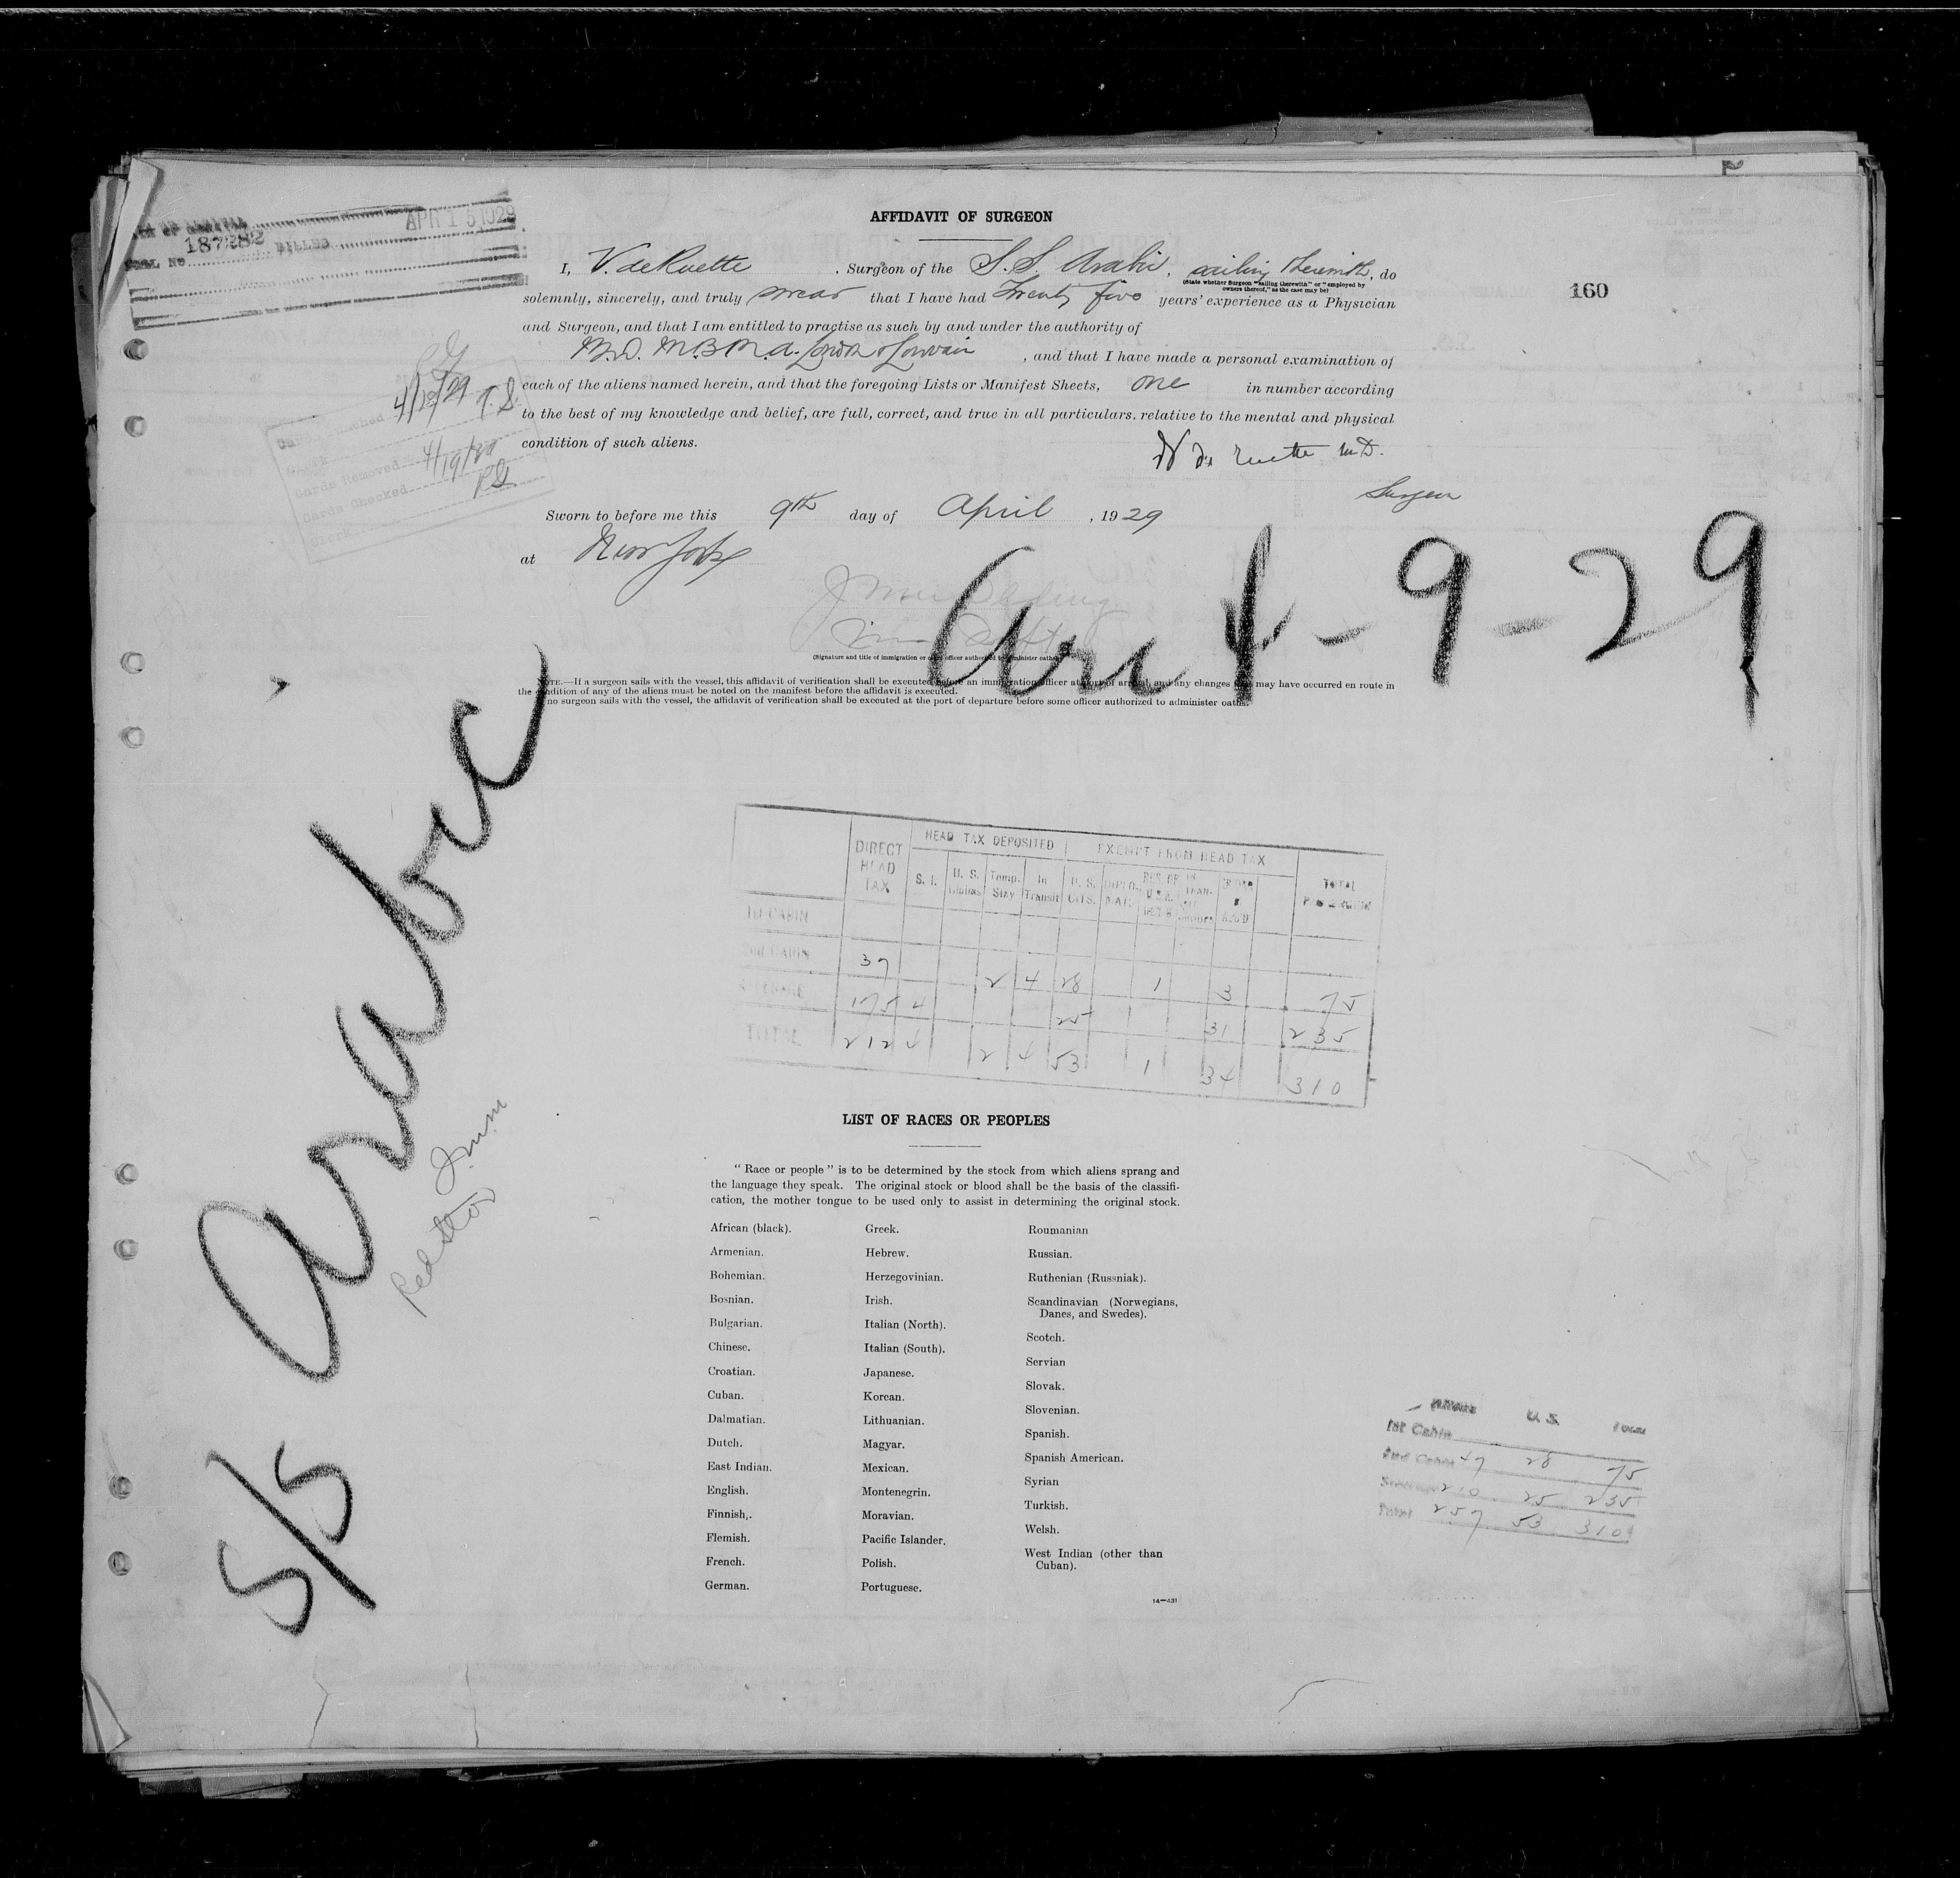 187282 BILLED APR 15 1929
AFFIDAVIT OF SURGEON
I, V. de Ruette, Surgeon of the S.S. Arabic, sailing therewith, do
(State whether Surgeon "sailing therewith" or "employed by
owners thereof," as the case may be)
160
solemnly, sincerely, and truly swear that I have had Twenty five years' experience as a Physician
and Surgeon, and that I am entitled to practise as such by and under the authority of
, and that I have made a personal examination of
each of the aliens named herein, and that the foregoing Lists or Manifest Sheets, one in number according
to the best of my knowledge and belief, are full, correct, and true in all particulars, relative to the mental and physical
condition of such aliens.
V de Ruette M.D.
Surgeon
Cards Removed 4/19/29
Cards Checked
Sworn to before me this 9th day of April, 1929
at New York
Arr 4-9-29
(Signature and title of immigration or other officer authorized to administer oaths)
NOTE.—If a surgeon sails with the vessel, this affidavit of verification shall be executed before an immigration officer at port of arrival, and any changes that may have occurred en route in
the condition of any of the aliens must be noted on the manifest before the affidavit is executed.
no surgeon sails with the vessel, the affidavit of verification shall be executed at the port of departure before some officer authorized to administer oaths.
S/S Arabic
Red Star
HEAD TAX DEPOSITED EXEMPT FROM HEAD TAX
DIRECT HEAD TAX S. I. U. S. Temp. Stay In Transit U. S. CITS. TOTAL
1st CABIN
2nd CABIN 37 2 4 28 1 3 75
STEERAGE 175 4 25 31 235
TOTAL 212 4 2 4 53 1 34 310
LIST OF RACES OR PEOPLES
"Race or people" is to be determined by the stock from which aliens sprang and
the language they speak. The original stock or blood shall be the basis of the classifi-
cation, the mother tongue to be used only to assist in determining the original stock.
African (black).
Armenian.
Bohemian.
Bosnian.
Bulgarian.
Chinese.
Croatian.
Cuban.
Dalmatian.
Dutch.
East Indian.
English.
Finnish.
Flemish.
French.
German.
Greek.
Hebrew.
Herzegovinian.
Irish.
Italian (North).
Italian (South).
Japanese.
Korean.
Lithuanian.
Magyar.
Mexican.
Montenegrin.
Moravian.
Pacific Islander.
Polish.
Portuguese.
Roumanian
Russian.
Ruthenian (Russniak).
Scandinavian (Norwegians,
Danes, and Swedes).
Scotch.
Servian
Slovak.
Slovenian.
Spanish.
Spanish American.
Syrian
Turkish.
Welsh.
West Indian (other than
Cuban).
14—431
Aliens U. S. Total
1st Cabin
2nd Cabin 47 28 75
Steerage 210 25 235
Total 257 53 310